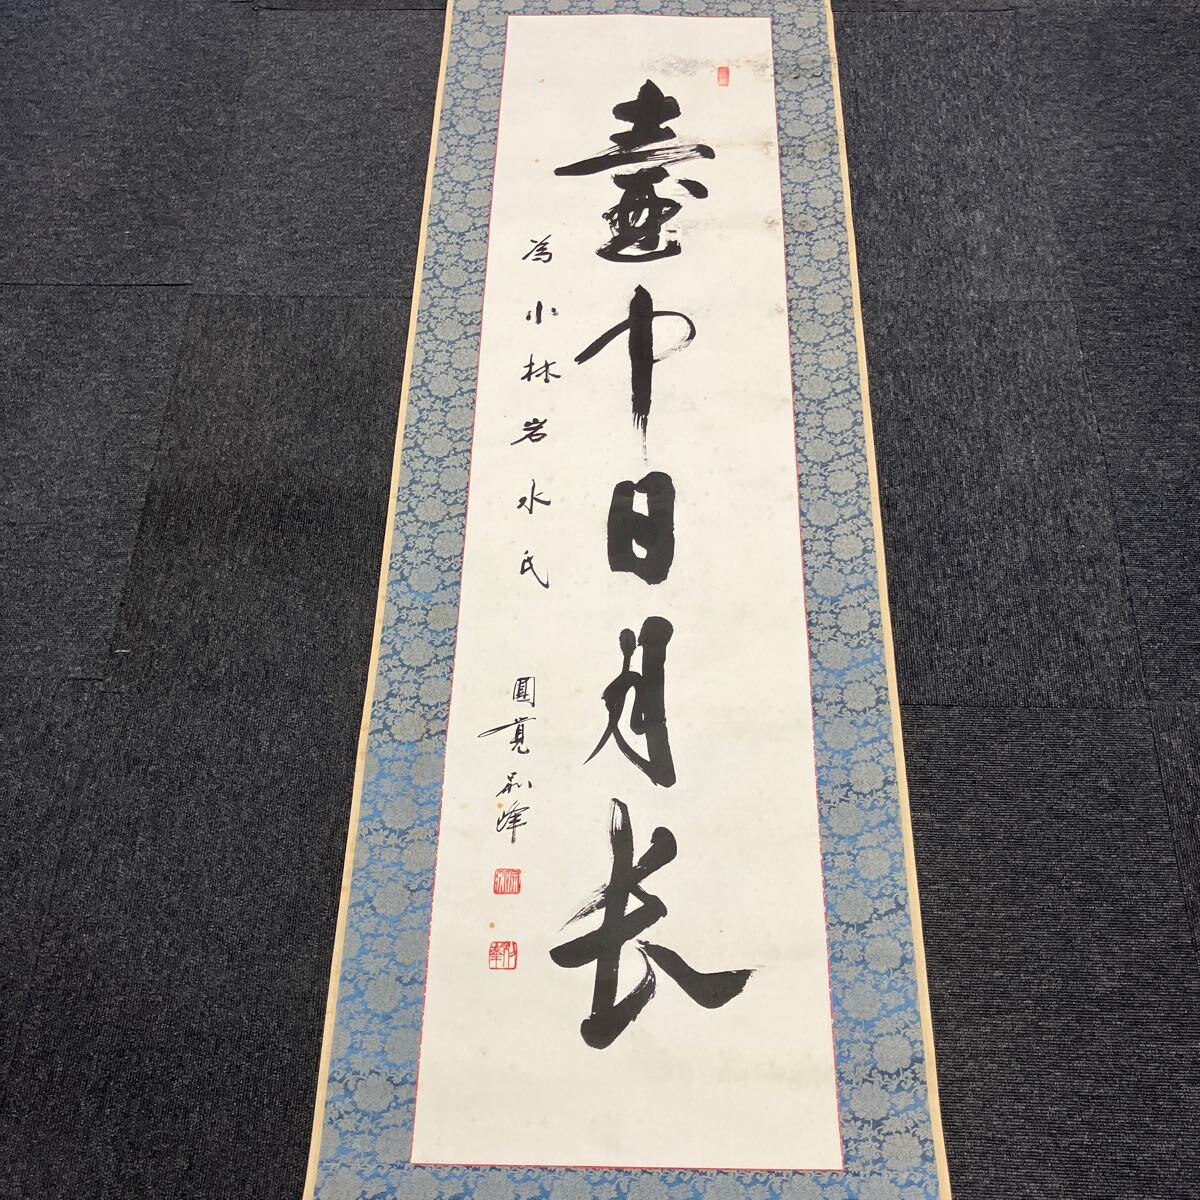 壷中日月长
為小林岩水氏
圓覚別峰